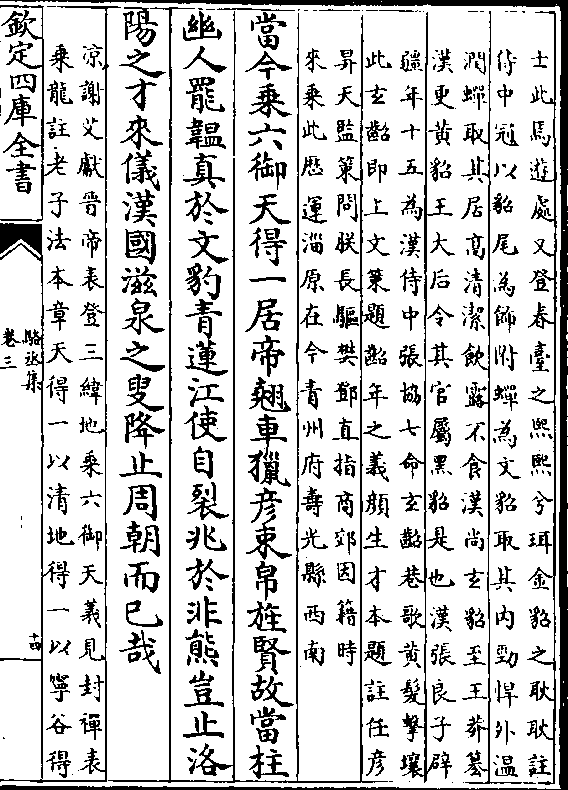 士此馬遊處又登春臺之熙熙兮珥金貂之耿耿註
侍中冠以貂尾為飾附蟬為文貂取其内勁悍外温
潤蟬取其居高清潔飲露不食漢尚玄貂至王莽篡
漢更黄貂王大后令其官屬黑貂是也漢張良子辟
疆年十五為漢侍中張協七命玄齠巷歌黄髮擊壤
此玄齠即上文策題齠年之義顔生才本題註任彦
昇天監策問朕長驅樊鄧直指商郊因籍時
來乘此厯運淄原在今青州府壽光縣西南
當今乘六御天得一居帝翹車獵彦束帛旌賢故當柱
幽人罷韞真於文豹青蓮江使自裂兆於非熊豈止洛
陽之才來儀漢國滋泉之叟降止周朝而已哉
凉謝艾獻晉帝表登三緯地乘六御天義見封禪表
乘龍註老子法本章天得一以清地得一以寧谷得
欽定四庫全書
駱丞集
卷三
十四